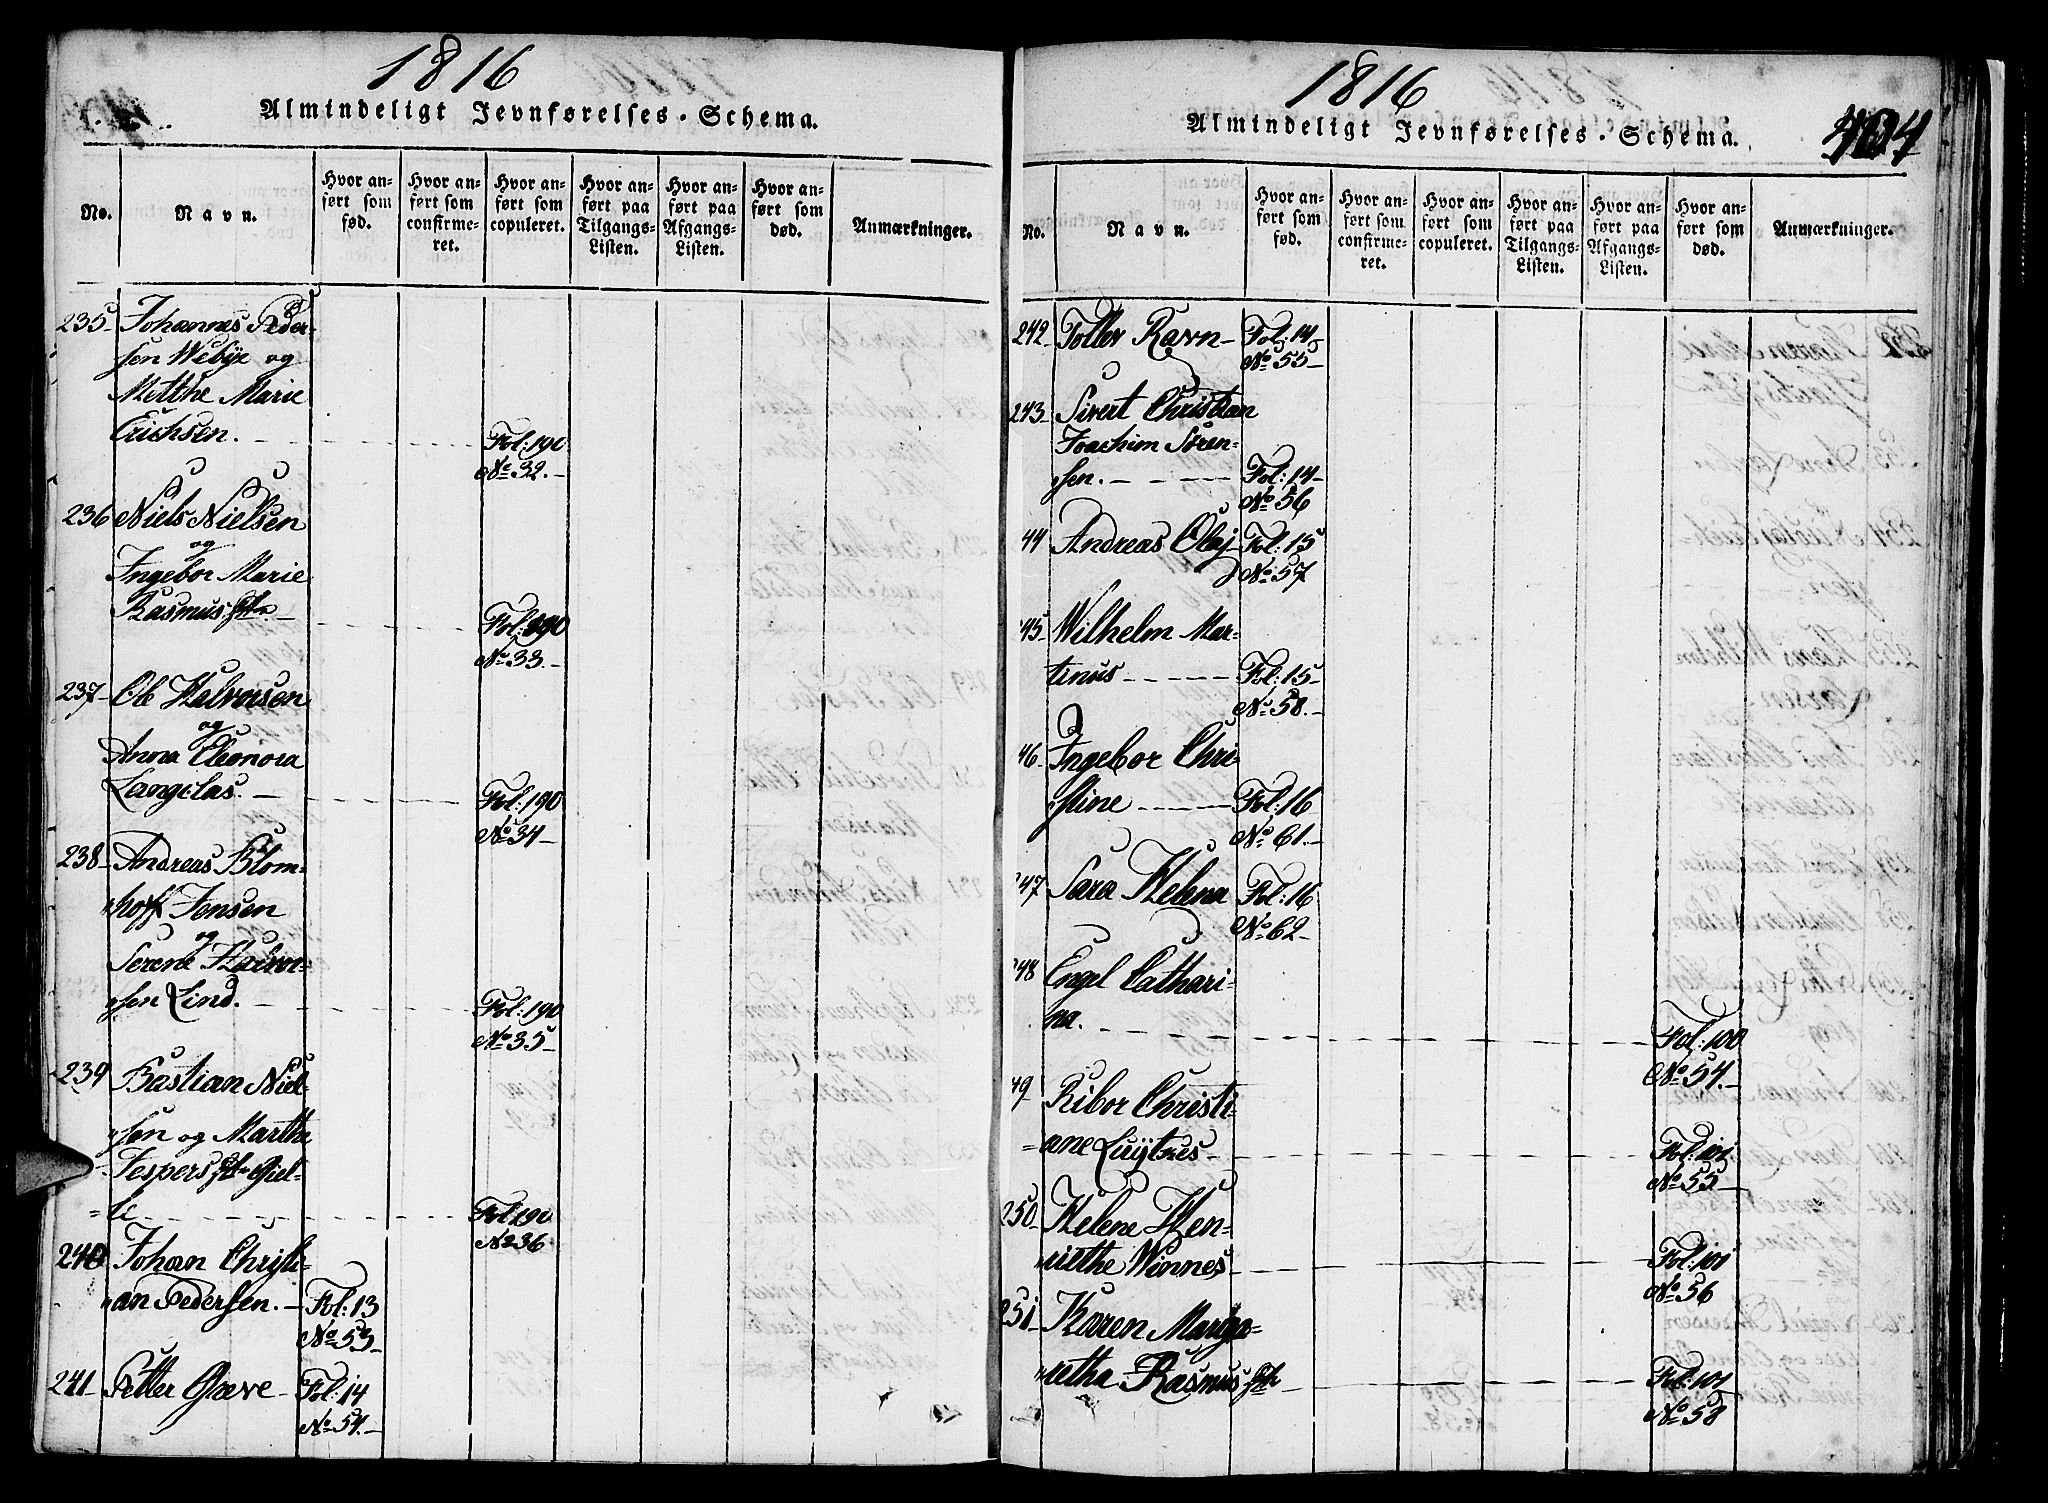 1816
Almindeligt Jevnførelses-Schema.
No.
Navn.
Hvor anført som fød.
Hvor anført som confirmeret.
Hvor anført som copuleret.
Hvor anført paa Tilgangs-Listen.
Hvor anført paa Afgangs-Listen.
Hvor anført som død.
Anmærkninger.
235 Johannes Peder-
sen Webÿe og
Metthe Marie
Erichsen. Fol: 190
No 32.
236 Niels Nielsen
og
Ingebor Marie
Rasmus Fol: 190
No 33.
237 Ole Halvorsen
og
Anna Eleonora
Langelas. Fol: 190
No 34
238 Andreas Blom-
hoff Jensen
og
Serene Halvor-
sen Lind. Fol: 190
No 35
239 Bastian Niel-
sen og Marthe
Jespers
Fol 190
No 36
240 Johan Christi-
an Pedersen. Fol: 13
No 53
241 Petter Greve Fol: 14
No 54.
1816
Almindeligt Jevnførelses-Schema.
404
No.
Navn.
Hvor anført som fød.
Hvor anført som confirmeret.
Hvor anført som copuleret.
Hvor anført paa Tilgangs-Listen.
Hvor anført paa Afgangs-Listen.
Hvor anført som død.
Anmærkninger.
242 Toller Ravn Fol: 14
No 55
243 Sivert Christian
Joachim Søren-
sen. Fol: 14
No 56
44 Andreas Olaj Fol: 15
No: 57
45 Wilhelm Mar-
tinus Fol: 15
No 58.
46 Ingebor Chri-
stine Fol: 16
No 61.
247 Sara Helena Fol: 16
No 62
248 Engel Cathari-
na. Fol: 100
No 54.
49 Ribor Christi-
=ane Luÿtnes Fol: 101
No 55
250 Helene Hen-
riethe Winnes Fol: 101
No 56
251 Karen Marga=
retha Rasmus Fol: 101
No 58